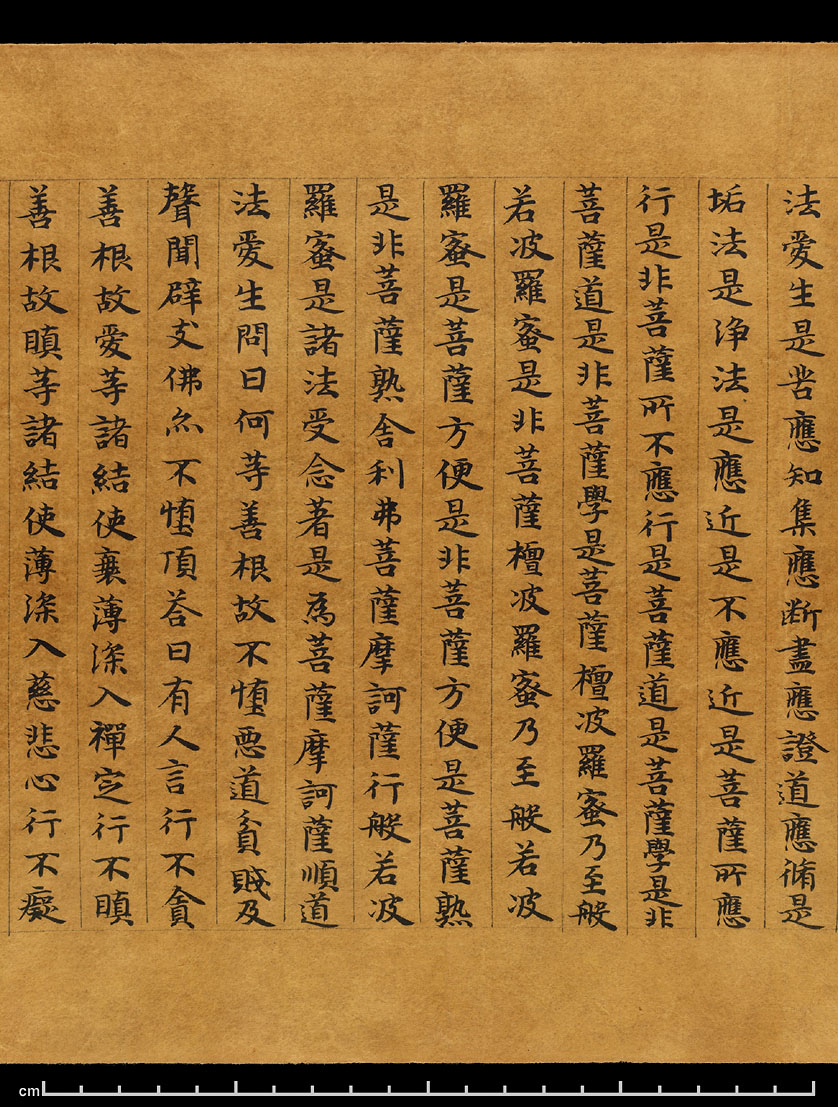 法愛生是苦應知集應断盡應證道應脩是
垢法是淨法是應近是不應近是菩薩所應
行是非菩薩所不應行是菩薩道是菩薩學是非
菩薩道是非菩薩學是菩薩檀波羅蜜乃至般
若波羅蜜是非菩薩檀波羅蜜乃至般若波
羅蜜是菩薩方便是非菩薩方便是菩薩熟
是非菩薩熟舍利弗菩薩摩訶薩行般若波
羅蜜是諸法受念著是為菩薩摩訶薩順道
法愛生問曰何等善根故不墮惡道貧賤及
聲聞辟支佛亦不墮頂荅曰有人言行不貪
善根故愛等諸結使衰薄深入禪定行不瞋
善根故瞋等諸結使薄深入慈悲心行不癡
cm